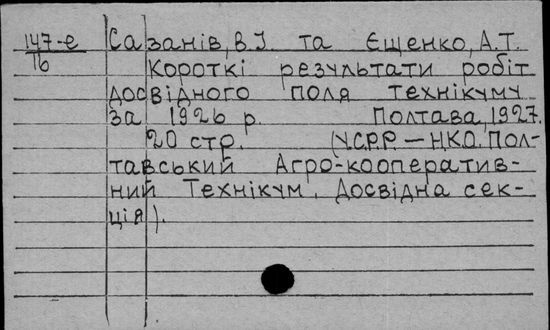 147-е Сазанів, В.І. та Єщенко, А.Т.
16 Короткі результати робіт
досвідного поля технікуму
за 1926 р. Полтава, 1927.
20 стр. (У.С.Р.Р. — НКО. Пол-
тавський Агро-кооператив-
ний Технікум. Досвідна сек-
ція).